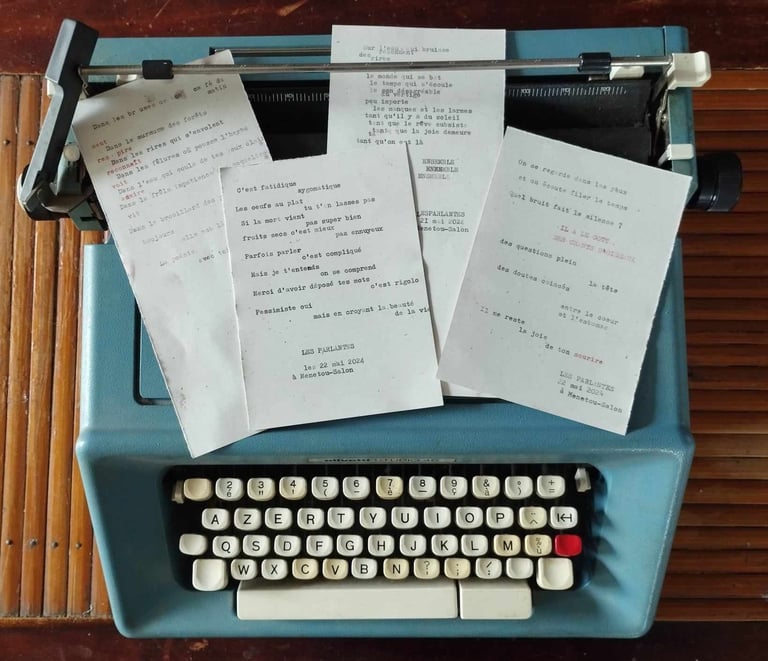 Dans les br umes
matin
sent
Dans le murmure des forêts
res pire
Dans les rires qui s'envolent
reconnaît
Dans les fêlures où pousse l'herbe
voit
Dans l'eau qui coule de tes yeux
admire
Dans le frôle
vit
Dans le brouillard des
toujours
avec
Sur l'eau qui bruisse
des
rires
le monde qui se bat
le temps qui s'écoule
le son désagréable
du vertige
peu importe
les manques et les larmes
tant qu'il y a du soleil
tant que le rêve subsiste
tant que la joie demeure
tant qu'on est là
ENSEMBLE
ENSEMBLE
ENSEMBLE
LESPARLANTES
21 mai 2024
Menetou-Salon
C'est fatidique
zygomatique
Les oeufs au plat
tu t'en lasses pas
Si la mort vient
pas super bien
fruits secs c'est mieux
pas ennuyeux
Parfois parler
c'est compliqué
Mais je t'entends
on se comprend
Merci d'avoir déposé tes mots
c'est rigolo
Pessimiste oui
mais en croyant la beauté
de la vie
LES PARLANTES
les 22 mai 2024
à Menetou-Salon
On se regarde dans les yeux
et on écoute filer le temps
Quel bruit fait le silence ?
IL A LE GOUT
DES CHANTS D'OISEAUX
des questions plein
la tête
des doutes coincés
entre le coeur
et l'estomac
Il me reste
la joie
de ton sourire
LES PARLANTES
22 mai 2024
à Menetou-Salon
olivetti
2 3 4 5 6 7 8 9 & ° +
é " ' ( - è _ ç à ) =
A Z E R T Y U I O P
Q S D F G H J K L M %
ù
W X C V B N ? . /